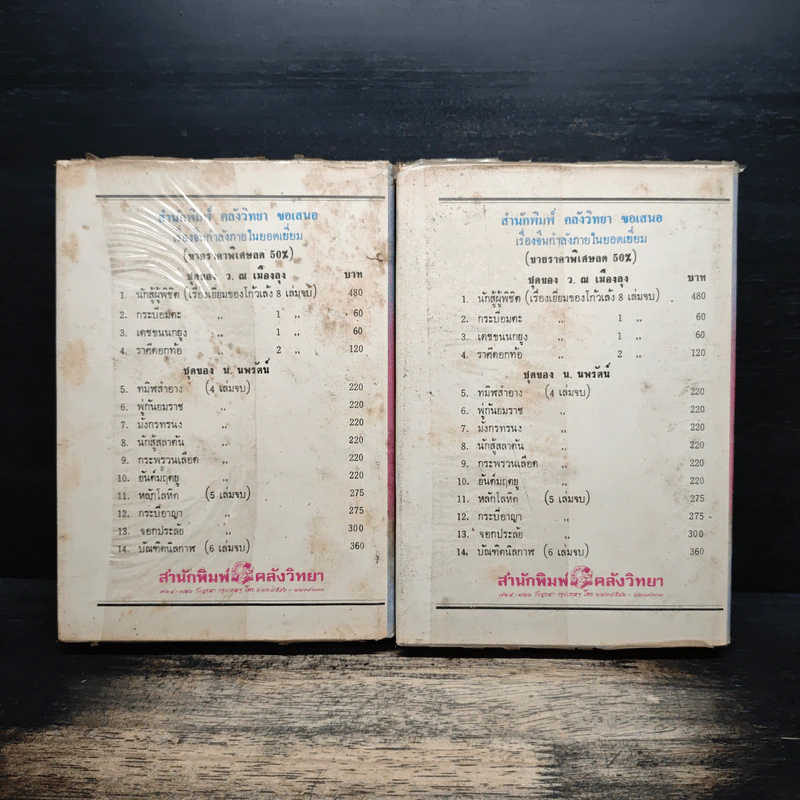 สำนักพิมพ์ คลังวิทยา ขอเสนอ
เรื่องจีนกำลังภายในยอดเยี่ยม
(ขายราคาพิเศษลด 50%)
ชุดของ ว. ณ เมืองลุง บาท
1. นักสู้ผู้พิชิต (เรื่องเยี่ยมของโก้วเล้ง 8 เล่มจบ) 480
2. กระบี่อมตะ ,, 1 ,, 60
3. เดชขนนกยูง ,, 1 ,, 60
4. ราศีดอกท้อ ,, 2 ,, 120
ชุดของ น. นพรัตน์
5. ทมิฬสำอาง (4 เล่มจบ) 220
6. พู่กันยมราช ,, 220
7. มังกรทรนง ,, 220
8. นักสู้สลาตัน ,, 220
9. กระพรวนเลือด ,, 220
10. ยันต์มฤตยู ,, 220
11. หลักโลหิต (5 เล่มจบ) 275
12. กระบี่อาญา ,, 275
13. จอกประลัย ,, 300
14. บัณฑิตนิลกาฬ (6 เล่มจบ) 360
สำนักพิมพ์ คลังวิทยา
สำนักพิมพ์ คลังวิทยา ขอเสนอ
เรื่องจีนกำลังภายในยอดเยี่ยม
(ขายราคาพิเศษลด 50%)
ชุดของ ว. ณ เมืองลุง บาท
1. นักสู้ผู้พิชิต (เรื่องเยี่ยมของโก้วเล้ง 8 เล่มจบ) 480
2. กระบี่อมตะ ,, 1 ,, 60
3. เดชขนนกยูง ,, 1 ,, 60
4. ราศีดอกท้อ ,, 2 ,, 120
ชุดของ น. นพรัตน์
5. ทมิฬสำอาง (4 เล่มจบ) 220
6. พู่กันยมราช ,, 220
7. มังกรทรนง ,, 220
8. นักสู้สลาตัน ,, 220
9. กระพรวนเลือด ,, 220
10. ยันต์มฤตยู ,, 220
11. หลักโลหิต (5 เล่มจบ) 275
12. กระบี่อาญา ,, 275
13. จอกประลัย ,, 300
14. บัณฑิตนิลกาฬ (6 เล่มจบ) 360
สำนักพิมพ์ คลังวิทยา